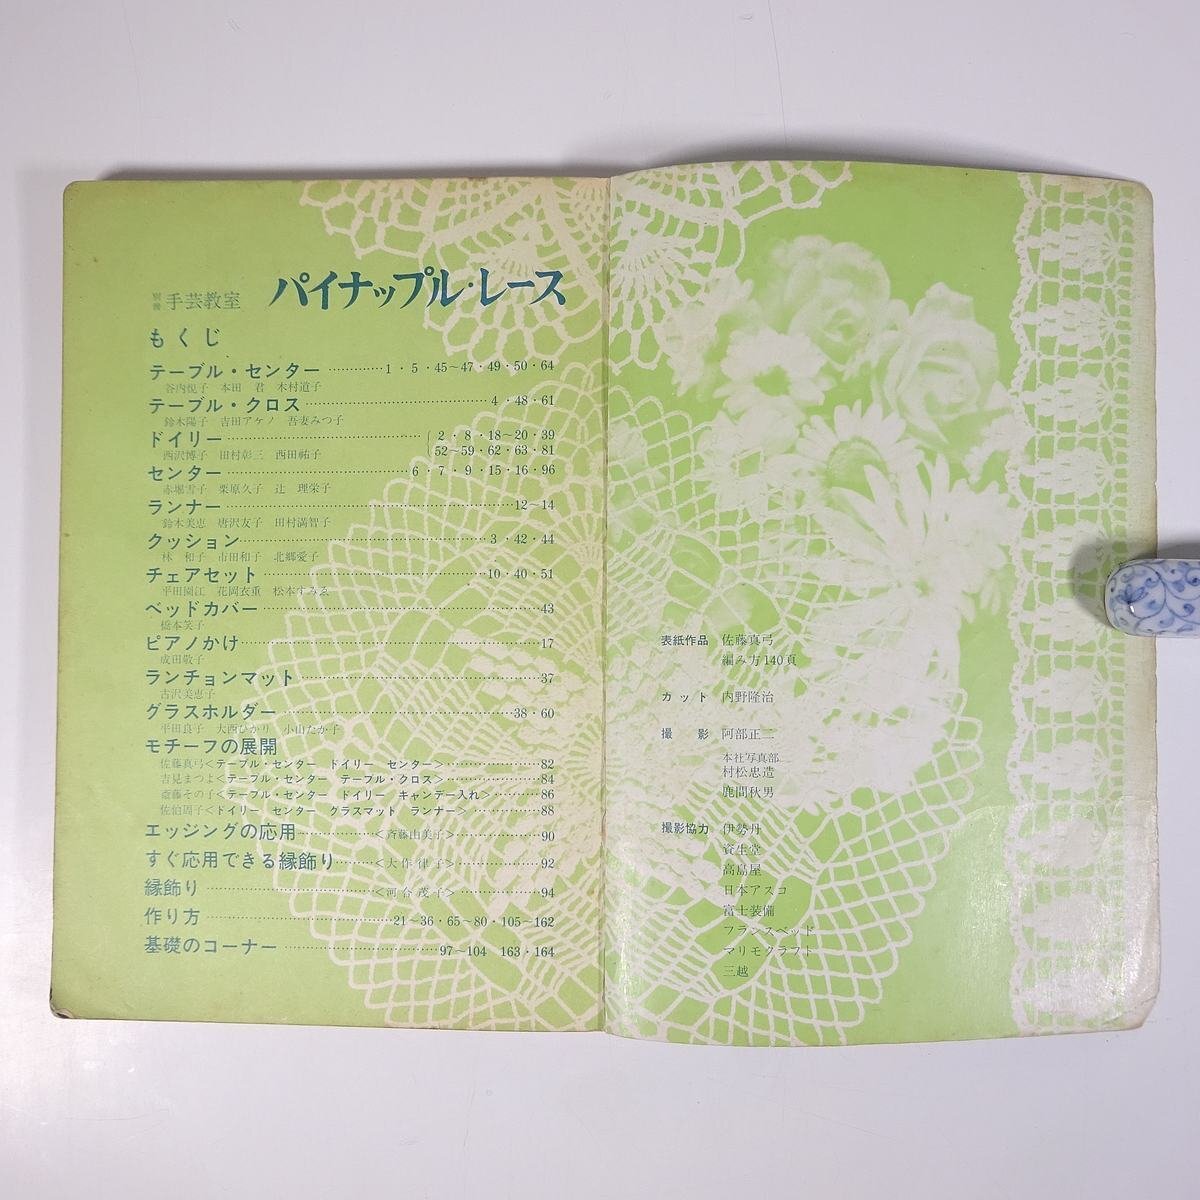 別冊 手芸教室 パイナップル・レース
もくじ
テーブル・センター…………1・5・45~47・49・50・64
谷内悦子 本田 君 木村道子
テーブル・クロス…………4・48・61
鈴木陽子 吉田アケノ 吾妻みつ子
ドイリー…………2・8・18~20・39
52~59・62・63・81
西沢博子 田村彰三 西田祐子
センター…………6・7・9・15・16・96
赤堀雪子 栗原久子 辻 理栄子
ランナー…………12~14
鈴木美恵 唐沢友子 田村満智子
クッション…………3・42・44
林 和子 市田和子 北郷愛子
チェアセット…………10・40・51
平田園江 花岡衣重 松本すみゑ
ベッドカバー…………43
橋本笑子
ピアノかけ…………17
成田敬子
ランチョンマット…………37
古沢美恵子
グラスホルダー…………38・60
平田良子 大西ひかり 小山たか子
モチーフの展開
佐藤真弓<テーブル・センター ドイリー センター>…………82
吉見まつよ<テーブル・センター テーブル・クロス>…………84
斎藤その子<テーブル・センター ドイリー キャンデー入れ>…………86
佐伯周子<ドイリー センター グラスマット ランナー>…………88
エッジングの応用…………<斉藤由美子>…………90
すぐ応用できる縁飾り…………<大作律子>…………92
縁飾り…………<河合茂子>…………94
作り方…………21~36・65~80・105~162
基礎のコーナー…………97~104 163・164
表紙作品 佐藤真弓
編み方140頁
カット 内野隆治
撮影 阿部正二
本社写真部
村松忠造
鹿間秋男
撮影協力 伊勢丹
資生堂
高島屋
日本アスコ
富士装備
フランスベッド
マリモクラフト
三越